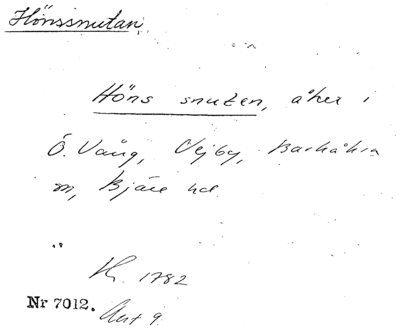 Hönssnutan
Höns snuten, åker i
Ö. Vång, Vejby, Barkåkra
m, Bjäre hd
1782
Nr 7012. Akt 9